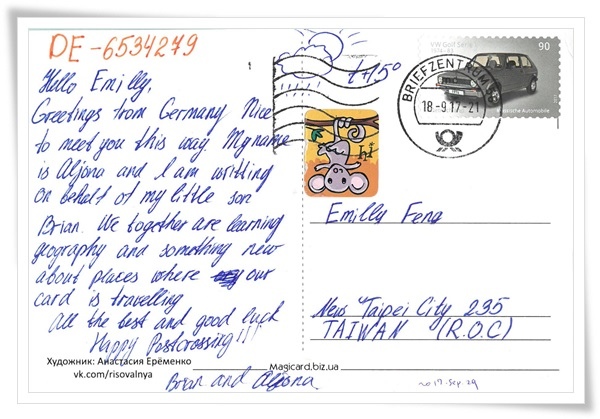 DE-6534279
Hello Emilly,
Greetings from Germany. Nice
to meet you this way. My name
is Aljona and I am writting
on behalf of my little son
Brian. We together are learning
geography and something new
about places where our
card is travelling.
All the best and good luck
Happy Postcrossing!!!
Brian and Aljona
Художник: Анастасия Ерёменко
vk.com/risovalnya
Magicard.biz.ua
+17/5°
hi
BRIEFZENTRUM
18-9.17-21
VW Golf Serie 1
90
Automobile
Emilly Feng
New Taipei City 235
TAIWAN (R.O.C)
2017.Sep.29